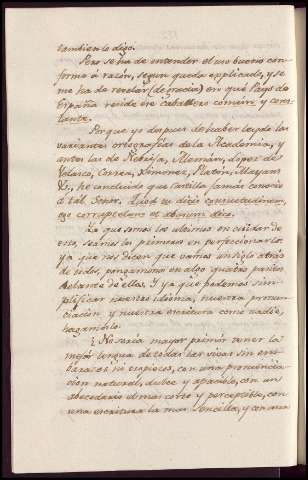 tambien lo digo.
Pero se ha de entender el uso bueno con
forme à razòn, segun queda explicado, y se
me ha de revelar (de gracia) en què Pays de
España reside ese caballero comùn, y cons
tante.
Porque yo despues de haber leydo las
variantes ortografias de la Academia, y
antes las de Nebrija, Alemàn, Lopez de
Velasco, Correa, Ximenez, Patòn, Mayans
&c, he concluido que Castilla jamàs conociò
à tal Señor. Quod tu dicis consuetudinem,
ego corruptelam et abusum dico.
Ya que somos los ultimos en cuidar de
esto, seamos los primeros en perfeccionarlo:
ya que nos dicen que vamos un siglo atràs
de todos, pongamonos en algo quatro pasos
delante de ellos. Y ya que podemos sim
plificar nuestro idioma, nuestra pronun
ciaciòn, y nuestra escritura como nadie,
hagamoslo.
¿No seria mayor primor tener la
mejor lengua de todas las vivas sin em
barazos ni tropiezos, con una pronuncia
cion natural, dulce y apacible, con un
abecedario el mas corto y perceptible, con
una escritura la mas sencilla, y con una